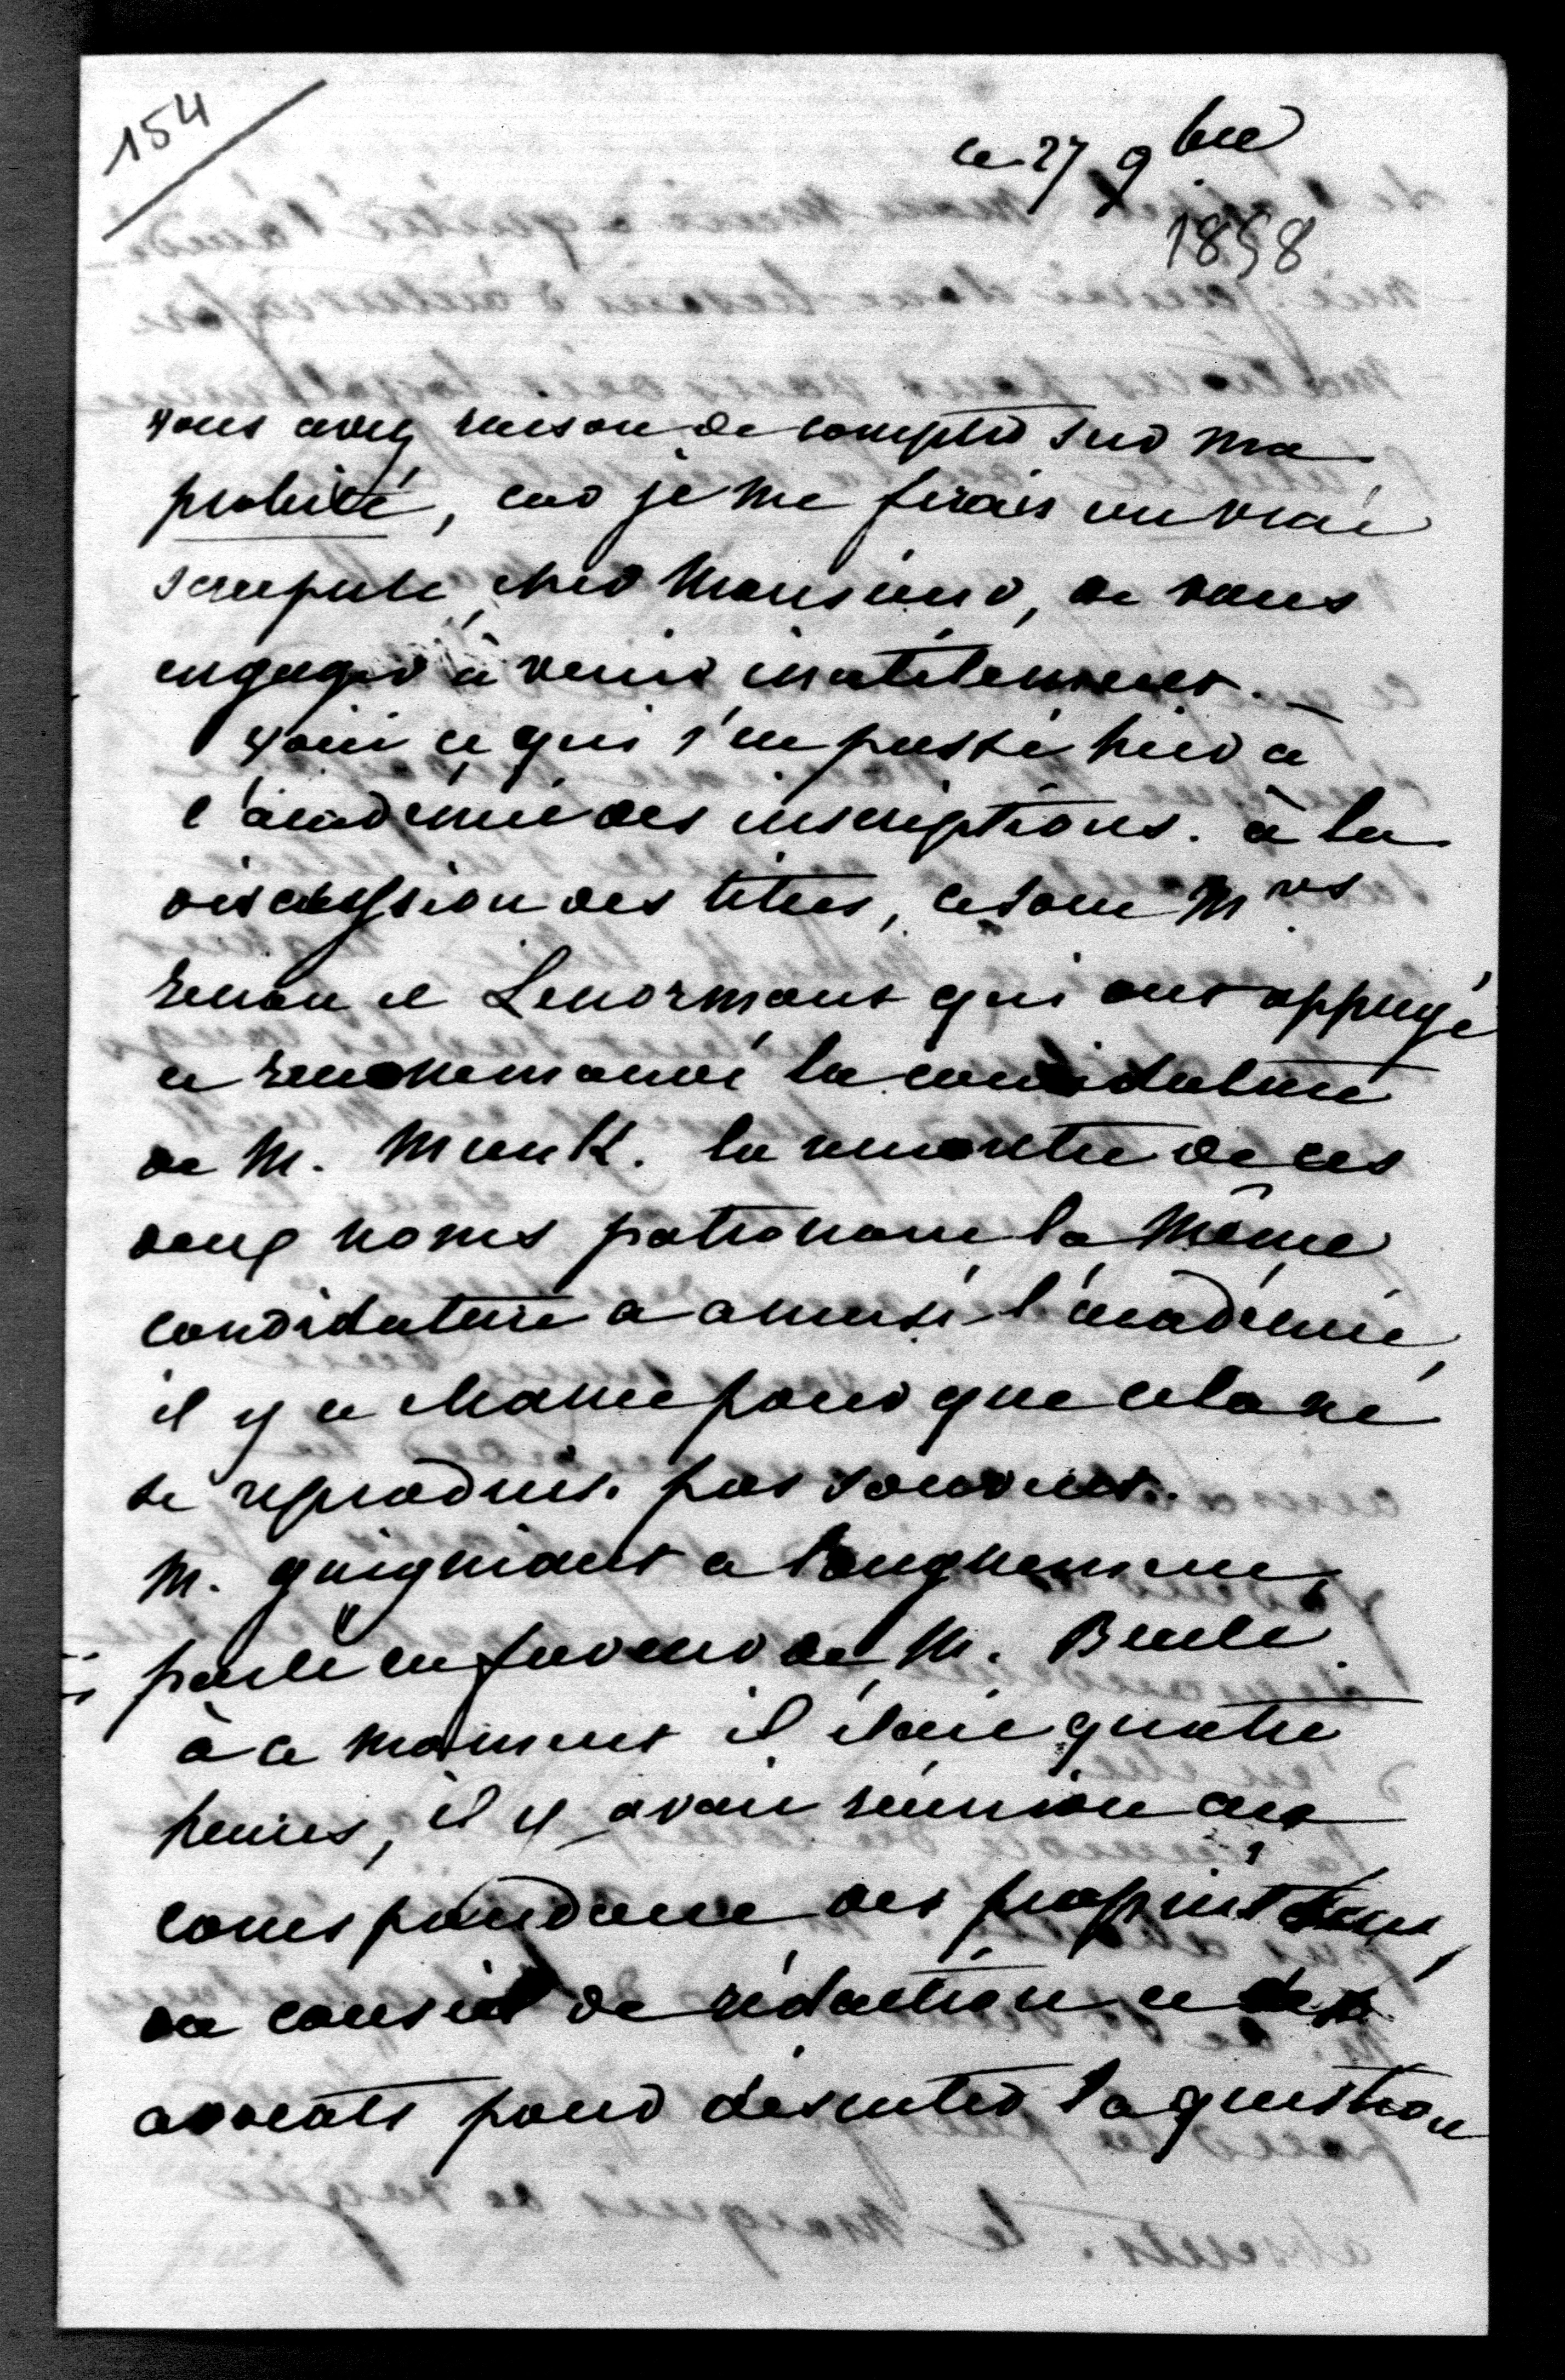 154
ce 27 9bre
1858
vous avez raison de compter sur ma
probité, car je me ferais un vrai
scrupule, cher Monsieur, de vous
engager à venir inutilement.
voici ce qui s'en passé hier à
l'académie des inscriptions. à la
discussion des titres, ce sont Mrs
renan et Lenormant qui ont appuyé
et recommandé la candidature
de M. Munk. la rencontre de ces
deux noms patronant la même
candidature a amusé l'académie,
il y a chance pour que cela ne
se reproduise pas souvent.
M. guigniaut a longuement
parlé en faveur de M. Beulé.
à ce moment il était quatre
heures, il y avait réunion au
correspondant des propriétaires,
du conseil de rédaction et des
avocats pour discuter la question